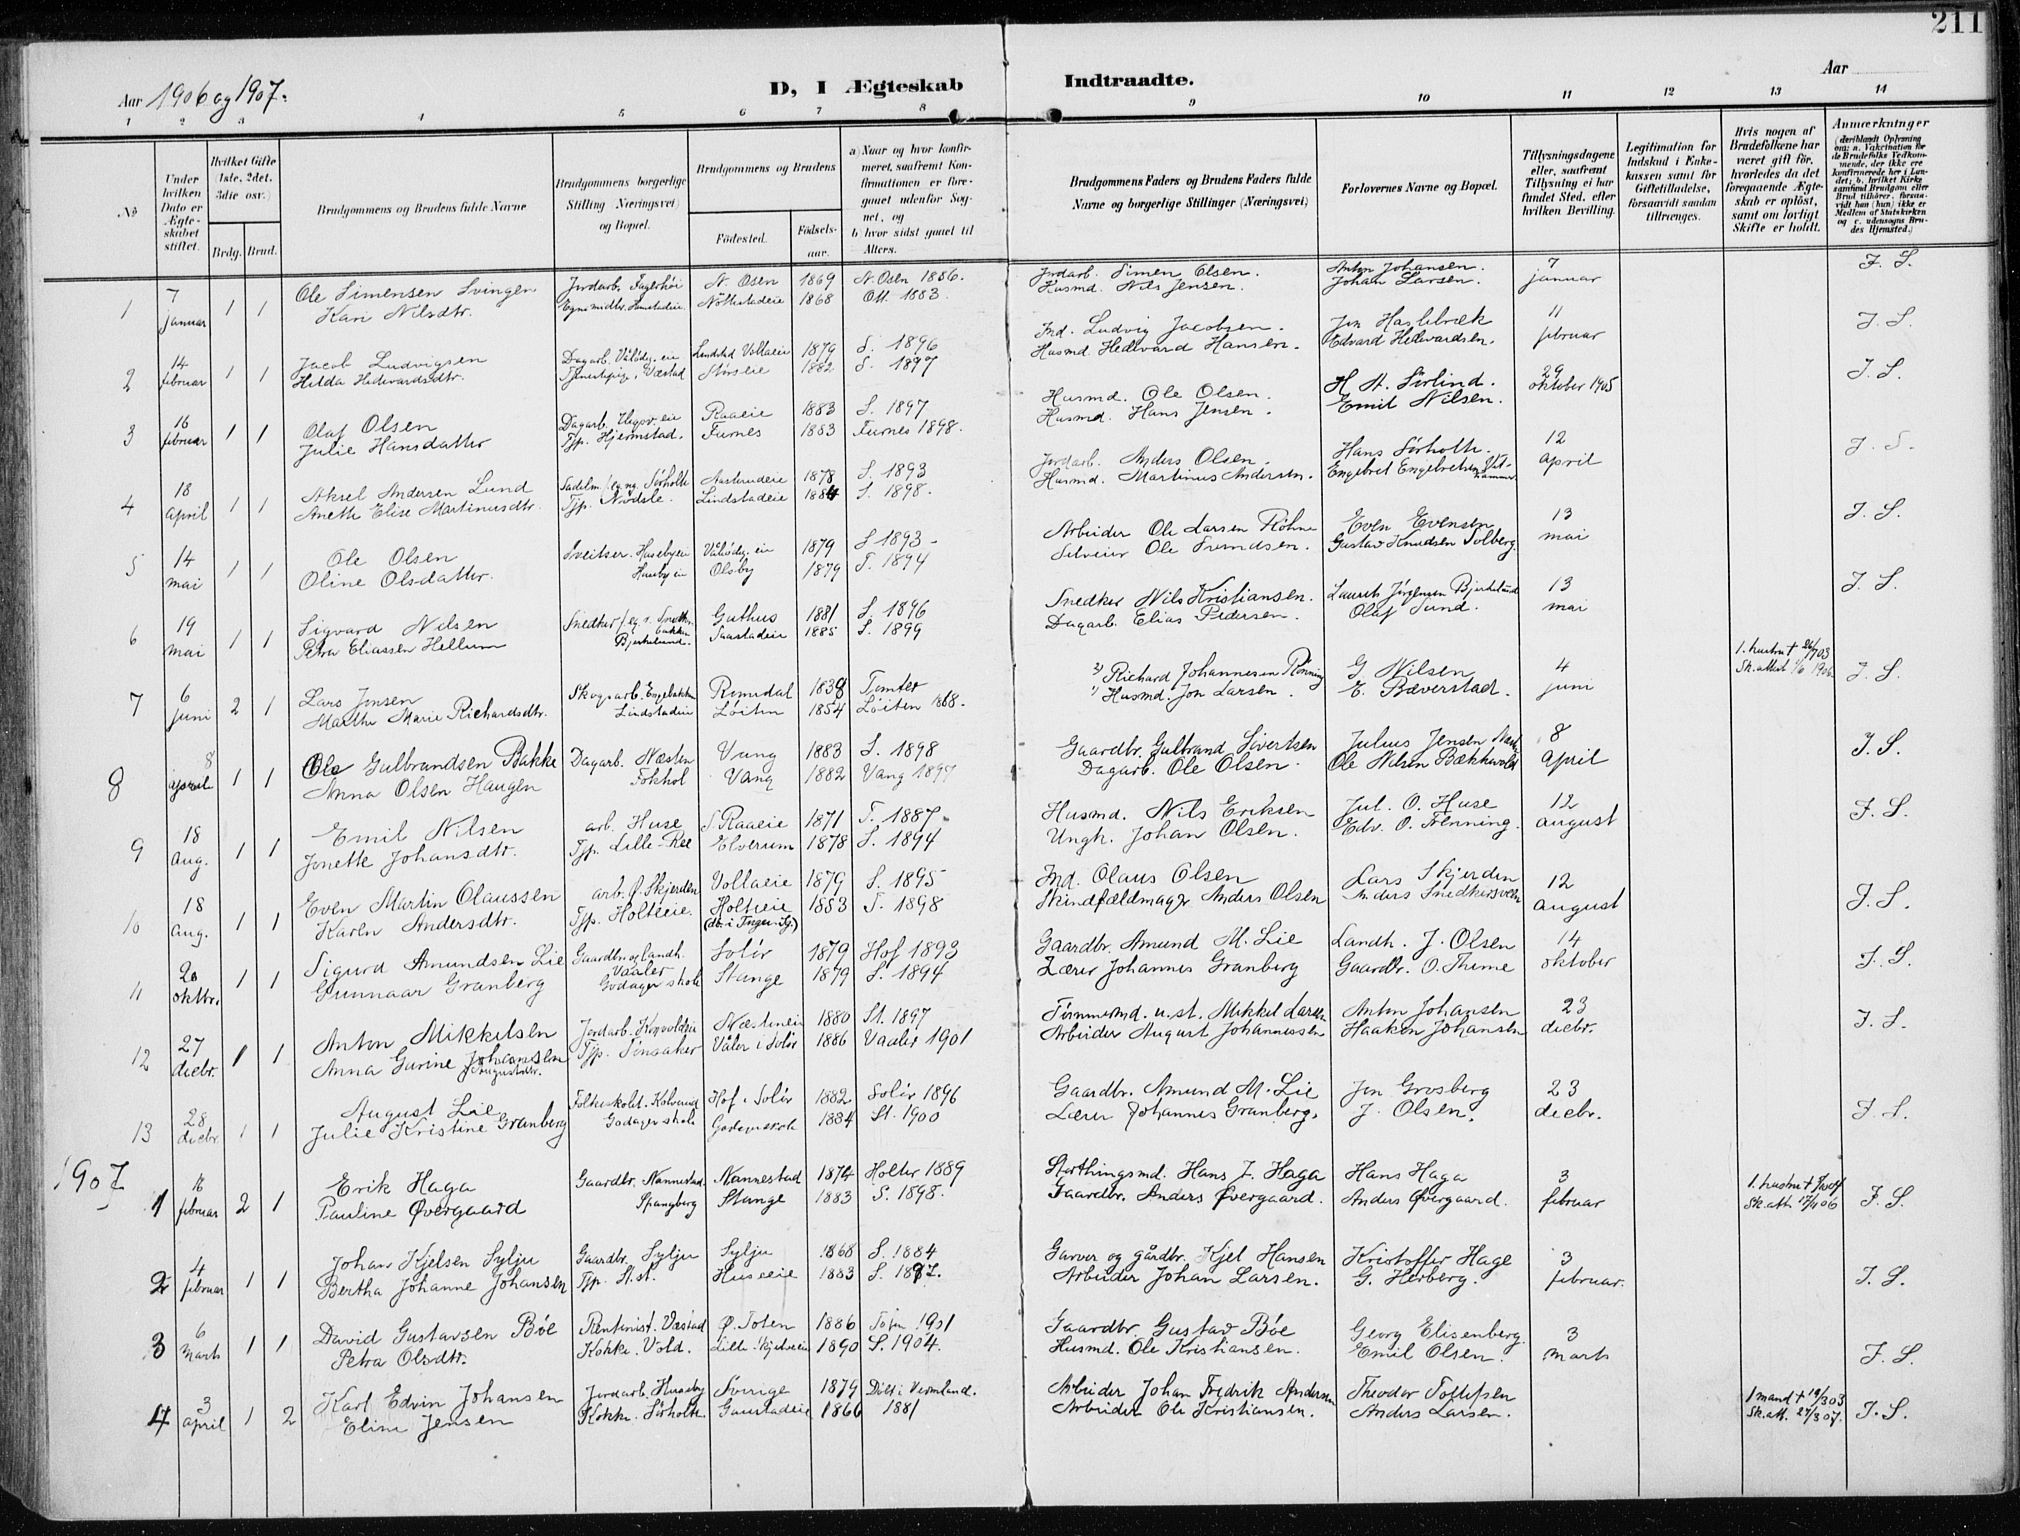 211
Aar 1906 og 1907.
D, I Ægteskab Indtraadte.
Aar
1 2 3 4 5 6 7 8 9 10 11 12 13 14
No
Under hvilken Dato er Ægteskabet stiftet.
Hvilket Gifte 1ste, 2det, 3die osv.)
Brdg. Brud.
Brudgommens og Brudens fulde Navne
Brudgommens borgerlige Stilling (Næringsvei) og Bopæl.
Brudgommens og Brudens
Fødested.
Fødselsaar.
a) Naar og hvor konfirmeret, saafremt Konfirmationen er foregaaet udenfor Sognet, og
b hvor sidst gaaet til Alters.
Brudgommens Faders og Brudens Faders fulde Navne og borgerlige Stillinger (Næringsvei)
Forlovernes Navne og Bopæl.
Tillysningsdagene eller, saafremt Tillysning ei har fundet Sted, efter hvilken Bevilling.
Legitimation for Indskud i Enkekassen samt for Giftetilladelse, forsaavidt saadan tiltrænges.
Hvis nogen af Brudefolkene har været gift før, hvorledes da det foregaaende Ægteskab er opløst, samt om lovligt Skifte er holdt.
Anmærkninger
(deriblandt Oplysning om: a. Vakcination for de Brudefolks Vedkommende, der ikke ere konfirmerede her i Landet; b. hvilket Kirkesamfund Brudgom eller Brud tilhører, forsaavidt han (hun) ikke er Medlem af Statskirken og c. udensogns Brudes Hjemsted.)
1 7 januar 1 1 Ole Simensen Svingen Jordarb. Fagerhøi N. Osen 1869 N. Osen 1886. Jordarb. Simen Olsen. Anton Johansen. 7 januar J. S.
Kari Nilsdtr. 1868 Ott. 1883. Husmd. Nils Jensen. Johan Larsen.
2 14 februar 1 1 Jacob Ludvigsen Dagarb. 1879 S. 1896 Ind. Ludvig Jacobsen. Jon Haslebræk 11 februar J. S.
Hilda Hedevardsdtr. Væstad 1882 S. 1897 Husmd. Hedevard Hansen. Edvard Hedevardsen.
3 16 februar 1 1 Olaf Olsen Dagarb. Raaeie 1883 S. 1897 Husmd. Ole Olsen. H. A. Sørlind. 29 oktober 1905 J. S.
Julie Hansdatter Tjp. Hjermstad. Furnes 1883 Furnes 1898. Husmd. Hans Jensen. Emil Nilsen.
4 18 april 1 1 Aksel Andersen Lund Sørholte 1878 S. 1893 Jordarb. Anders Olsen. Hans Sørholte. 12 april J. S.
Anette Elise Martinusdtr. Tjp. Nødsle. Lindstadeie 1884 S. 1898. Husmd. Martinus Andersen. Engebret Engebretsen
5 14 mai 1 1 Ole Olsen Sveitser. Husebyeie 1879 S 1893 Arbeider Ole Larsen Røhne Even Evensen 13 mai J. S.
Oline Olsdatter. Husebyeie Olsby 1879 S. 1894 Ole Gustav Knudsen Solberg.
6 19 mai 1 1 Sigvard Nilsen Snedker Guthus 1881 S. 1896 Snedker Nils Kristiansen. Laurits Jørgensen Bjerkelund 13 mai J. S.
Petra Eliassen Hellum Bjerkelund. Saastadeie 1885 S. 1899 Dagarb. Elias Pedersen. Olaf Sund.
7 6 juni 2 1 Lars Jensen Skogsarb. Engebakken Romedal 1838 Tomter 2) Richard Johannesen Rønning G. Nilsen 4 juni 1. hustru † 26/7 03 J. S.
Marthe Marie Richardsdtr. Lindstadeie Løiten 1854 Løiten 1868. 1) Husmd. Jon Larsen. E. Bæverstad. Sk.attest 1/6 1906.
8 8 april 1 1 Ole Gulbrandsen Bakke Dagarb. Næsten Vang 1883 S. 1898 Gaardbr. Gulbrand Sivertsen Julius Jensen 8 april J. S.
Anna Olsen Haugen Fokhol Vang 1882 Vang 1897 Dagarb. Ole Olsen. Ole Nilsen Bækkevold
9 18 aug. 1 1 Emil Nilsen arb. Huse S Raaeie 1871 S. 1887. Husmd. Nils Eriksen Jul. O. Huse 12 august J. S.
Jonette Johansdtr. Tjp. Lille-Ree Elverum 1878 S. 1894 Ungk. Johan Olsen. Edv. O. Frenning.
10 18 aug. 1 1 Even Martin Olaussen arb. Ø. Skjerden Vollaeie 1879 S. 1895 Ind. Olaus Olsen Lars Skjerden 12 august J. S.
Karen Andersdtr. Tjp. Holteeie. Holteeie 1883 S. 1898 Skindfældmager Anders Olsen Anders Snedkersveen
11 20 oktbr. 1 1 Sigurd Amundsen Lie Gaardbr. og Landh. Vaaler Solør 1879 Hof 1893 Gaardbr. Amund M. Lie Landh. J. Olsen 14 oktober J. S.
Gunnaar Granberg Godager skole Stange 1879 S. 1894 Lærer Johannes Granberg Gaardbr. O. Thime
12 27 decbr. 1 1 Anton Mikkelsen Jordarb. Næsteneie 1880 St. 1897 Tømmermd. u. st. Mikkel Larsen Anton Johansen 23 decbr. J. S.
Anna Gurine Johansen Augustdtr. Tjp. Sinsaker Våler i Solør 1886 Vaaler 1901 Arbeider August Johannessen Haakon Johansen
13 28 decbr 1 1 August Lie Hof i Solør 1882 Solør 1896 Gaardbr. Amund M. Lie Jon Grosberg 23 decbr. J. S.
Julie Kristine Granberg Godager skole Godagerskole 1884 St. 1900 Lærer Johannes Granberg. J. Olsen.
1907
1 16 februar 2 1 Erik Haga Gaardbr. Nannestad Nannestad 1874 Holter 1889 Storthingsmd. Hans J. Haga Hans Haga 3 februar 1. hustru † J. S.
Pauline Øvergaard Spangberg Stange 1883 S. 1898. Gaardbr. Anders Øvergaard. Anders Øvergaard. Sk.att. 17/1 06
2 4 februar 1 1 Johan Kjelsen Sylju Gaardbr. Sylju Sylju 1868 S. 1884 Garver og gårdbr. Kjel Hansen Kristoffer Hage 3 februar. J. S.
Bertha Johanne Johansen Tjp. St.st. Huseeie 1883 S. 1897. Arbeider Johan Larsen. G. Herberg.
3 6 Marts 1 1 David Gustavsen Bøe Rentenist. Væstad Ø. Toten 1886 1901 Gaardbr. Gustav Bøe Georg Elisenberg. 3 Marts J. S.
Petra Olsdtr. Kokke. Vold. 1890 S. 1904. Husmd. Ole Kristiansen. Emil Olsen.
4 3 april 1 2 Karl Edvin Johansen Jordarb. Huseby Sverige 1879 Vermland. Arbeider Johan Fredrik Andersen Theodor Tollefsen 1 mand † 19/3 03 J. S.
Eline Jensen Kokke. Sørholte. Gaustadeie 1866 1881 Arbeider Ole Kristiansen. Anders Larsen. Sk.att. 27/3 07.